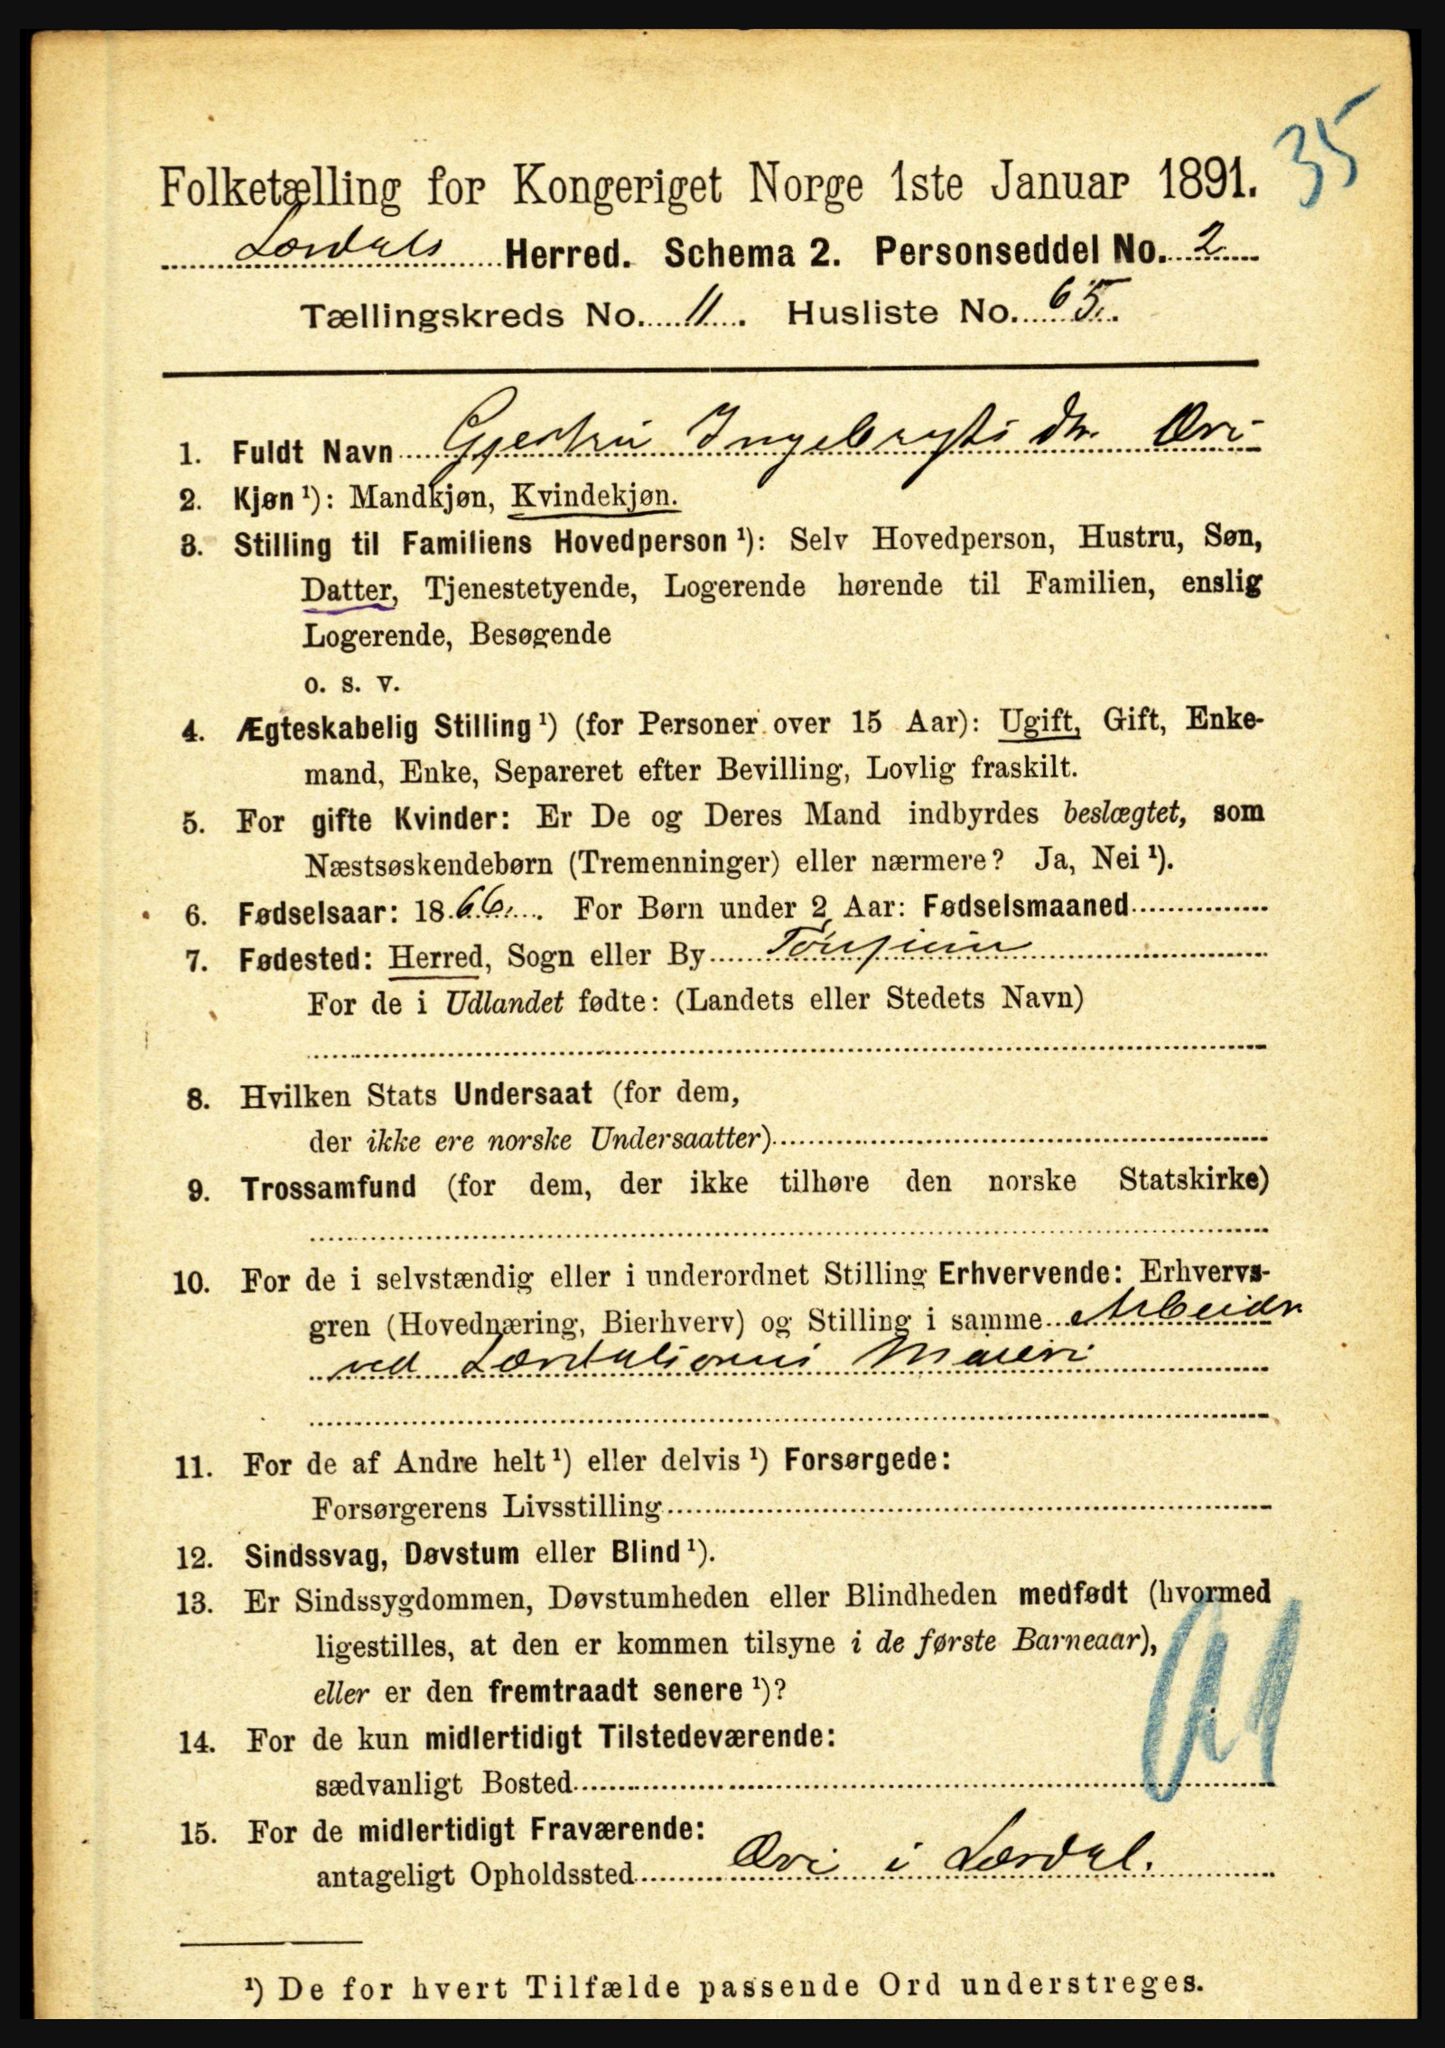 35
Folketælling for Kongeriget Norge 1ste Januar 1891.
Lærdals Herred. Schema 2. Personseddel No. 2
Tællingskreds No. 11. Husliste No. 65.
1. Fuldt Navn Gjertru Ingebrigtsdtr. Øri
2. Kjøn ¹): Mandkjøn, Kvindekjøn.
3. Stilling til Familiens Hovedperson ¹): Selv Hovedperson, Hustru, Søn,
Datter, Tjenestetyende, Logerende hørende til Familien, enslig
Logerende, Besøgende
o. s. v.
4. Ægteskabelig Stilling ¹) (for Personer over 15 Aar): Ugift, Gift, Enke-
mand, Enke, Separeret efter Bevilling, Lovlig fraskilt.
5. For gifte Kvinder: Er De og Deres Mand indbyrdes beslægtet, som
Næstsøskendebørn (Tremenninger) eller nærmere? Ja, Nei ¹).
6. Fødselsaar: 1866. For Børn under 2 Aar: Fødselsmaaned
7. Fødested: Herred, Sogn eller By Tønjum
For de i Udlandet fødte: (Landets eller Stedets Navn)
8. Hvilken Stats Undersaat (for dem,
der ikke ere norske Undersaatter)
9. Trossamfund (for dem, der ikke tilhøre den norske Statskirke)
10. For de i selvstændig eller i underordnet Stilling Erhvervende: Erhvervs-
gren (Hovednæring, Bierhverv) og Stilling i samme Arbeidr
ved Lærdalsørens Maieri
11. For de af Andre helt ¹) eller delvis ¹) Forsørgede:
Forsørgerens Livsstilling
12. Sindssvag, Døvstum eller Blind ¹).
13. Er Sindssygdommen, Døvstumheden eller Blindheden medfødt (hvormed
ligestilles, at den er kommen tilsyne i de første Barneaar),
eller er den fremtraadt senere ¹)?
14. For de kun midlertidigt Tilstedeværende:
sædvanligt Bosted
15. For de midlertidigt Fraværende:
antageligt Opholdssted Øri i Lærdal.
¹) De for hvert Tilfælde passende Ord understreges.